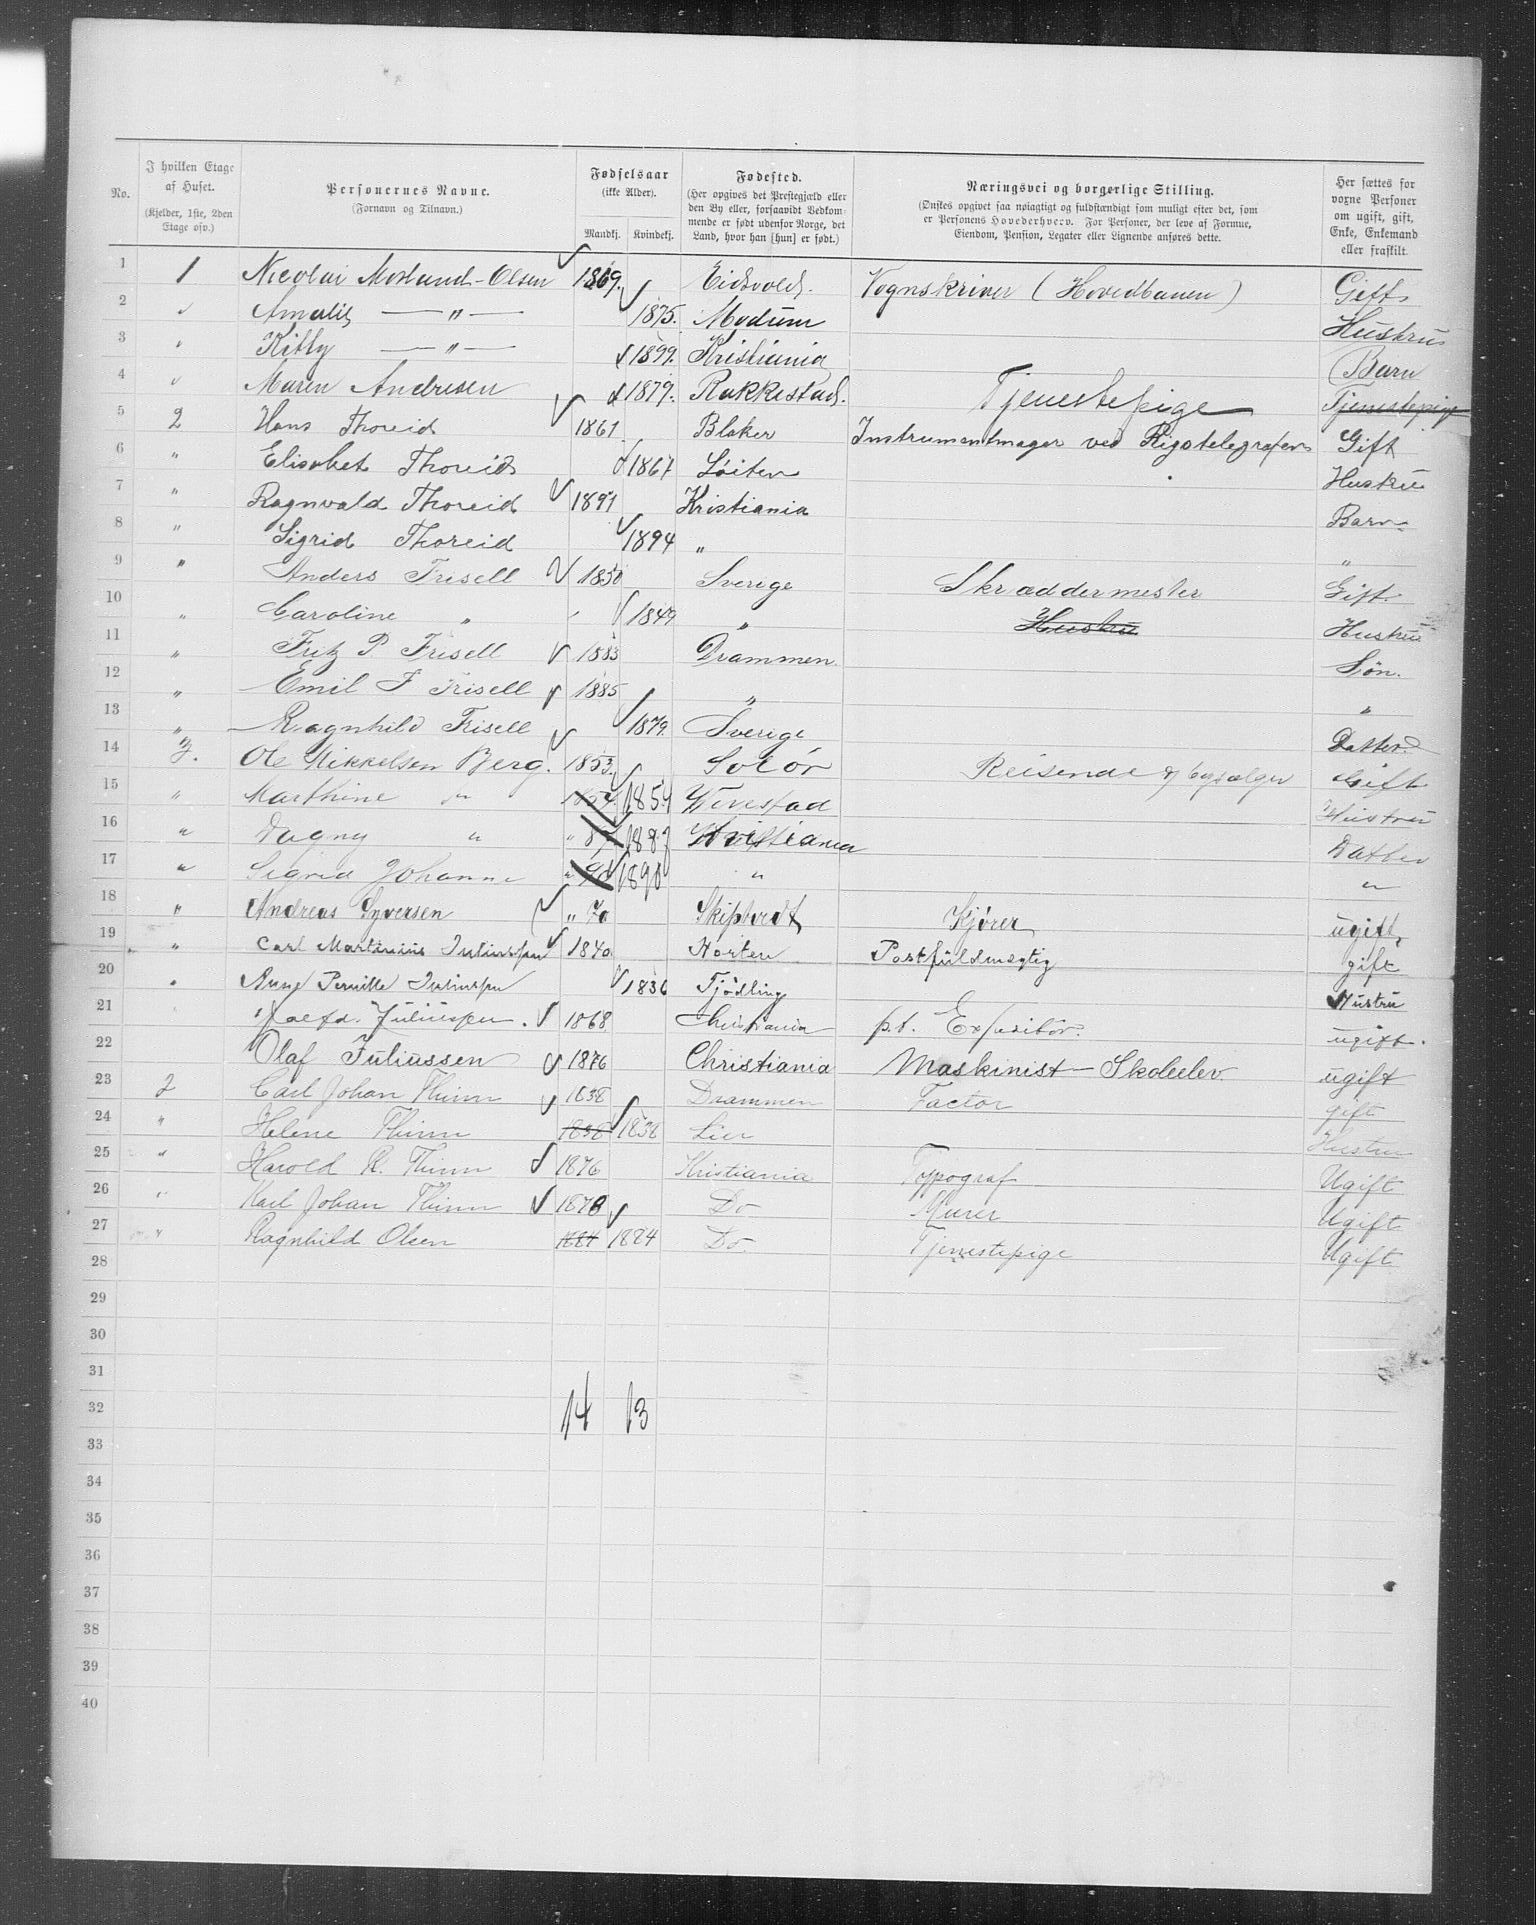 No. | I hvilken Etage af Huset. (Kjelder, 1ste, 2den Etage osv.) | Personernes Navne. (Fornavn og Tilnavn.) | Fødselsaar (ikke Alder). Mandkj. Kvindekj. | Fødested. (Her opgives det Prestegjæld eller den By eller, forsaavidt Vedkommende er født udenfor Norge, det Land, hvor han [hun] er født.) | Næringsvei og borgerlige Stilling. (Ønskes opgivet saa nøiagtigt og fuldstændigt som muligt efter det, som er Personens Hovederhverv. For Personer, der leve af Formue, Eiendom, Pension, Legater eller Lignende anføres dette.) | Her sættes for voxne Personer om ugift, gift, Enke, Enkemand eller fraskilt.
1 1 Nicolai Moslund-Olsen 1869. Eidsvold. Vognskriver (Hovedbanen) Gift
2 " Amalie — " — 1875. Modum Hustru
3 " Kitty — " — 1899. Kristiania Barn
4 " Maren Andresen 1879. Rakkestad. Tjenestepige Tjenestepige
5 2 Hans Thoreid 1861. Blaker Instrumentmager ved Rigstelegrafen Gift
6 " Elisabet Thoreid 1867 Löiten Hustru
7 " Ragnvald Thoreid 1891 Kristiania Barn
8 " Sigrid Thoreid 1894 " "
9 " Anders Frisell 1850 Sverige Skræddermester Gift
10 " Caroline " 1849 " Hustru Hustru
11 " Fritz P Frisell 1883 Drammen Søn.
12 " Emil F Frisell 1885 " "
13 " Ragnhild Frisell 1879. Sverige Datter
14 3. Ole Mikkelsen Berg. 1853. Solör Reisende Gift
15 " Marthine " 1854 Hustru
16 " Dagny " 1887 Kristiania Datter
17 " Sigrid Johanne 1890 " "
18 " Andreas Syversen " 70 Skiptvedt Kjører ugift,
19 " Carl Martinius Juliussen 1840. Horten Postfuldmægtig gift
20 " Anne Pernille Juliussen 1836 Tjödling Hustru
21 Juliussen. 1868 Christiania p.t. Expeditör. ugift.
22 Olaf Juliussen 1876 Christiania Maskinist - Skoleelev ugift
23 2 Carl Johan Thinn 1838 Drammen Factor gift
24 " Helene Thinn 1838 1838 Lier Hustru
25 " Harold R. Thinn 1876 Kristiania Typograf Ugift
26 " Karl Johan Thinn 1878 Do Murer Ugift
27 " Ragnhild Olsen 1884 1884 Do Tjenestepige Ugift
28
29
30
31
32 14 13
33
34
35
36
37
38
39
40